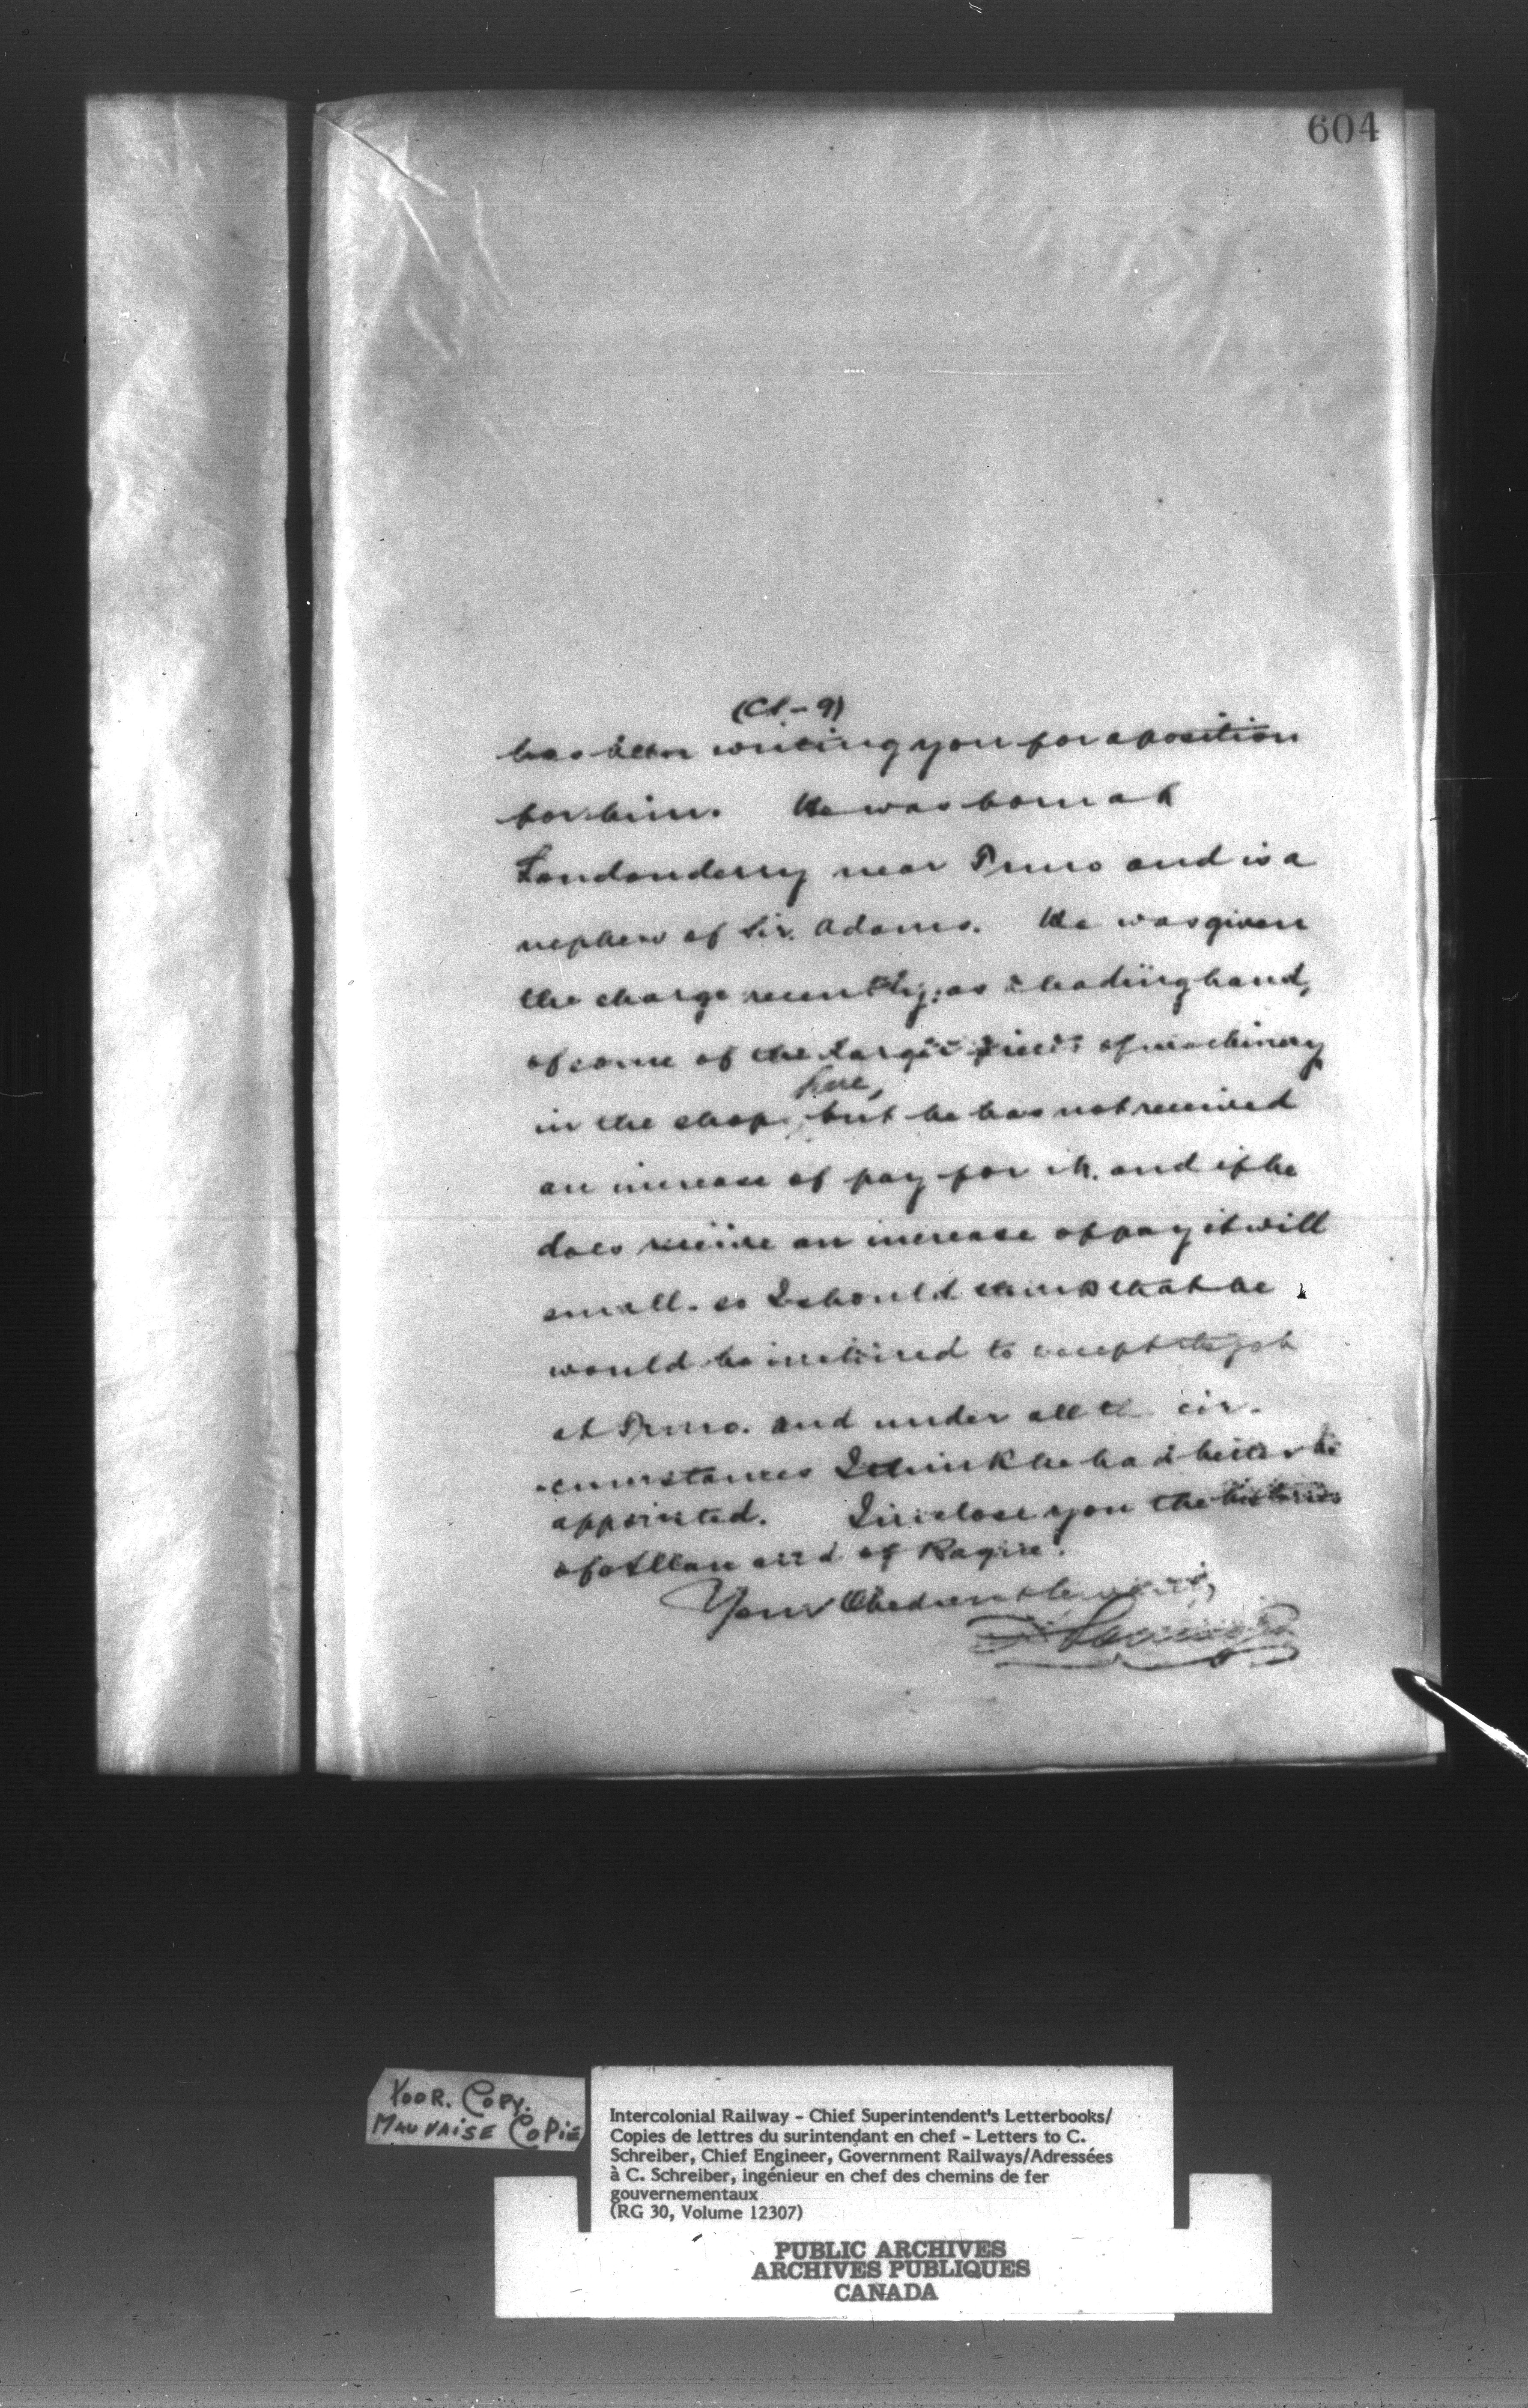 604
(Cl-9)
has been writing you for a position
for him. He was born at
Londonderry near Truro and is a
nephew of Sir. Adams. He was given
the charge recently, as a leading hand,
of some of the larger pieces of machinery
here,
in the shop, but he has not received
an increase of pay for it. and if he
does receive an increase of pay it will
small. so I should think that he
would be inclined to accept the job
at Truro. and under all the cir-
-cumstances I think he had better be
appointed. I inclose you the histories
of Allan and of
Your Obedient Servant,
POOR. COPY.
MAUVAISE COPIE
Intercolonial Railway - Chief Superintendent's Letterbooks/
Copies de lettres du surintendant en chef - Letters to C.
Schreiber, Chief Engineer, Government Railways/Adressées
à C. Schreiber, ingénieur en chef des chemins de fer
gouvernementaux
(RG 30, Volume 12307)
PUBLIC ARCHIVES
ARCHIVES PUBLIQUES
CANADA